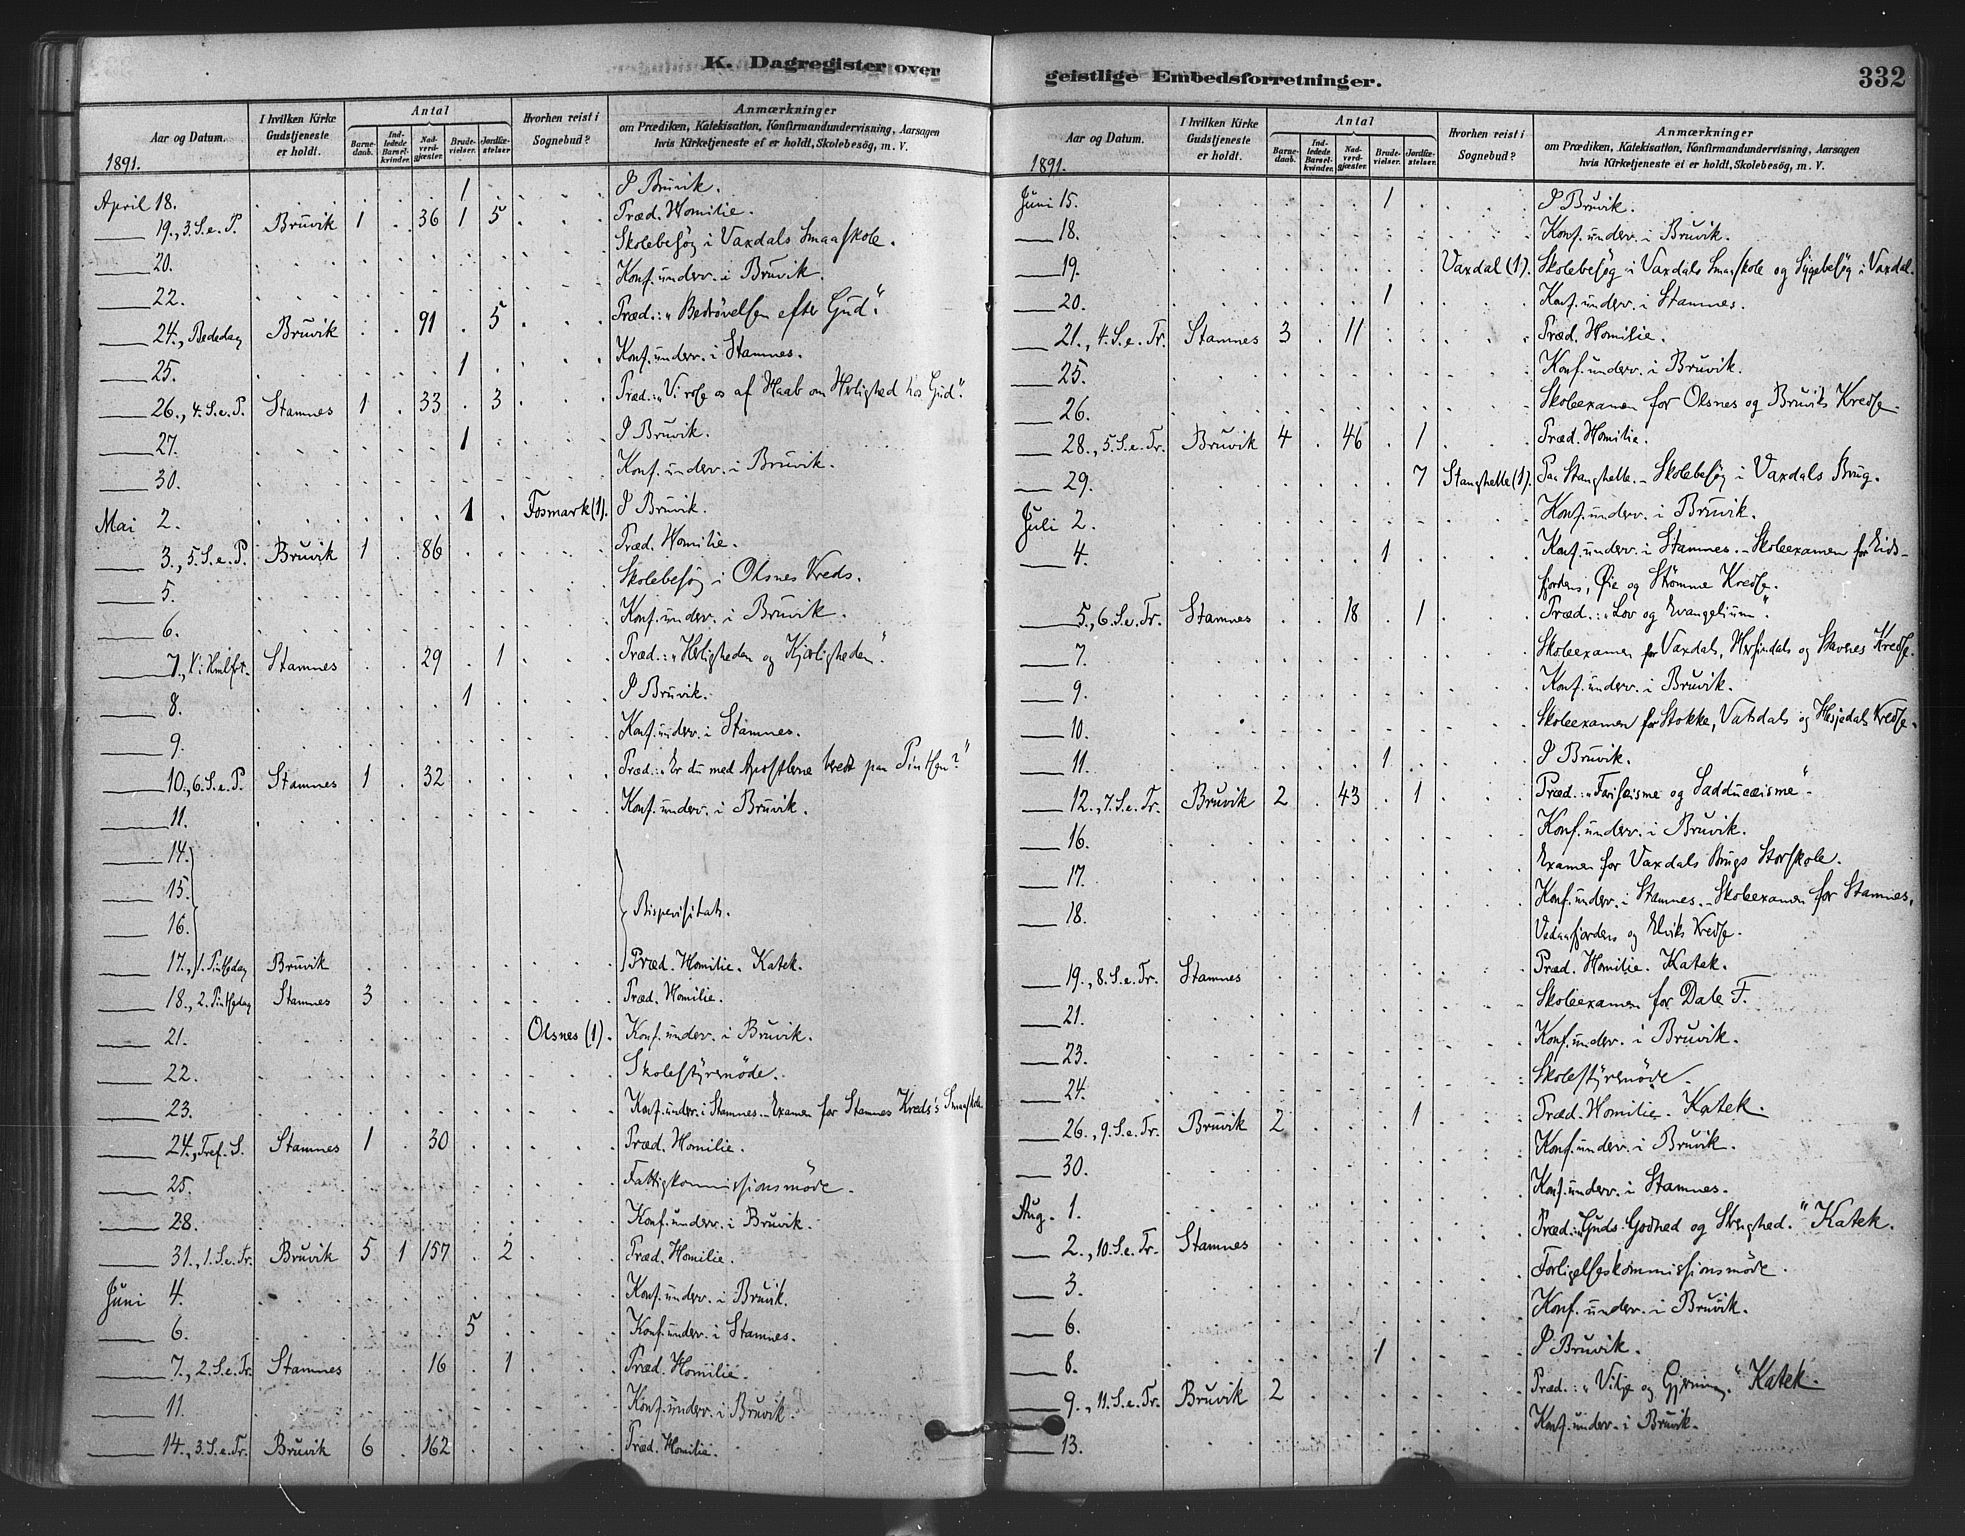 K. Dagregister over
Aar og Datum.
I hvilken Kirke Gudstjeneste er holdt.
Antal
Barnedaab.
Indledede Barselkvinder.
Nadverdgjæster.
Brudevielser.
Jordfæstelser
Hvorhen reist i Sognebud?
Anmærkninger
om Prædiken, Katekisation, Konfirmandundervisning, Aarsagen
hvis Kirketjeneste ei er holdt, Skolebesøg, m. V.
1891.
April 18. 1 I Bruvik.
19., 3. S. e. P. Bruvik 1 36 1 5 Præd. Homilie.
20. Skolebesøg i Vaxdals Smaaskole.
22. Konf. underv. i Bruvik.
24., Bededag Bruvik 91 5 Præd.: „Bedrøvelsen efter Gud."
25. 1 Konf. underv. i Stamnes.
26., 4. S. e. P. Stamnes 1 33 3 Præd.: „Vi rose os af Haab om Herlighed hos Gud."
27. 1 I Bruvik.
30. Konf. underv. i Bruvik.
Mai 2. 1 Fosmark (1). I Bruvik.
3., 5. S. e. P. Bruvik 1 86 Præd. Homilie.
5. Skolebesøg i Olsnes Kreds.
6. Konf. underv. i Bruvik.
7., Kr. Himlfrt. Stamnes 29 1 Præd.: „Herligheden og Kjærligheden."
8. 1 I Bruvik.
9. Konf. underv. i Stamnes.
10., 6. S. e. P. Stamnes 1 32 Præd.: „Er du med Apostlerne beredt paa Pintsen?"
11. Konf. underv. i Bruvik.
14.
15.
16. Bispevisitats.
17., 1. Pintsedag Bruvik Præd. Homilie. Katek.
18., 2. Pintsedag Stamnes 3 Præd. Homilie.
21. Olsnes (1). Konf. underv. i Bruvik.
22. Skolestyremøde.
23. Konf. underv. i Stamnes. – Examen for Stamnes Kreds's Smaaskole
24., Tref. S. Stamnes 1 30 Præd. Homilie.
25. Fattigkommissionsmøde.
28. Konf. underv. i Bruvik.
31., 1. S. e. Tr. Bruvik 5 1 157 2 Præd. Homilie.
Juni 4. Konf. underv. i Bruvik.
6. 5 Konf. underv. i Stamnes.
7., 2. S. e. Tr. Stamnes 16 1 Præd. Homilie.
11. Konf. underv. i Bruvik.
14., 3. S. e. Tr. Bruvik 6 162 Præd. Homilie.
geistlige Embedsforretninger.
332
Aar og Datum.
I hvilken Kirke Gudstjeneste er holdt.
Antal
Barnedaab.
Indledede Barselkvinder.
Nadverdgjæster.
Brudevielser.
Jordfæstelser.
Hvorhen reist i Sognebud?
Anmærkninger
om Prædiken, Katekisation, Konfirmandundervisning, Aarsagen
hvis Kirketjeneste ei er holdt, Skolebesøg, m. V.
1891.
Juni 15. 1 I Bruvik.
18. Konf. underv. i Bruvik.
19. Vaxdal (1). Skolebesøg i Vaxdals Smaaskole og Sygebesøg i Vaxdal.
20. 1 Konf. underv. i Stamnes.
21., 4. S. e. Tr. Stamnes 3 11 Præd. Homilie.
25. Konf. underv. i Bruvik.
26. Skoleexamen for Olsnes og Bruviks Kredse.
28., 5. S. e. Tr. Bruvik 4 46 1 Præd. Homilie.
29. 7 Stanghelle (1). Paa Stanghelle. – Skolebesøg i Vaxdals Brug.
Juli 2. Konf. underv. i Bruvik.
4. 1 Konf. underv. i Stamnes. – Skoleexamen for Eids-
fjordens, Øie og Strømme Kredse.
5., 6. S. e. Tr. Stamnes 18 1 Præd.: „Lov og Evangelium".
7. Skoleexamen for Vaxdal, Herfindals og Stavnes Kredse.
9. Konf. underv. i Bruvik.
10. Skoleexamen for Stokke, Vatsdals og Hesjedals Kredse.
11. 1 I Bruvik.
12., 7. S. e. Tr. Bruvik 2 43 1 Præd.: „Farisæisme og Sadducæisme".
16. Konf. underv. i Bruvik.
17. Examen for Vaxdals Brugs Storskole.
18. Konf. underv. i Stamnes. – Skoleexamen for Stamnes,
Vedaafjordens og Elviks Kredse.
19., 8. S. e. Tr. Stamnes Præd. Homilie. Katek.
21. Skoleexamen for Dale F.
23. Konf. underv. i Bruvik.
24. Skolestyremøde.
26., 9. S. e. Tr. Bruvik 2 1 Præd. Homilie. Katek.
30. Konf. underv. i Bruvik.
Aug. 1. Konf. underv. i Stamnes.
2., 10. S. e. Tr. Stamnes Præd.: „Guds Godhed og Strenghed." Katek.
3. Forligelseskommissionsmøde.
6. Konf. underv. i Bruvik.
8. 1 I Bruvik.
9., 11. S. e. Tr. Bruvik 2 Præd.: „Vilje og Gjerning." Katek.
13. Konf. underv. i Bruvik.